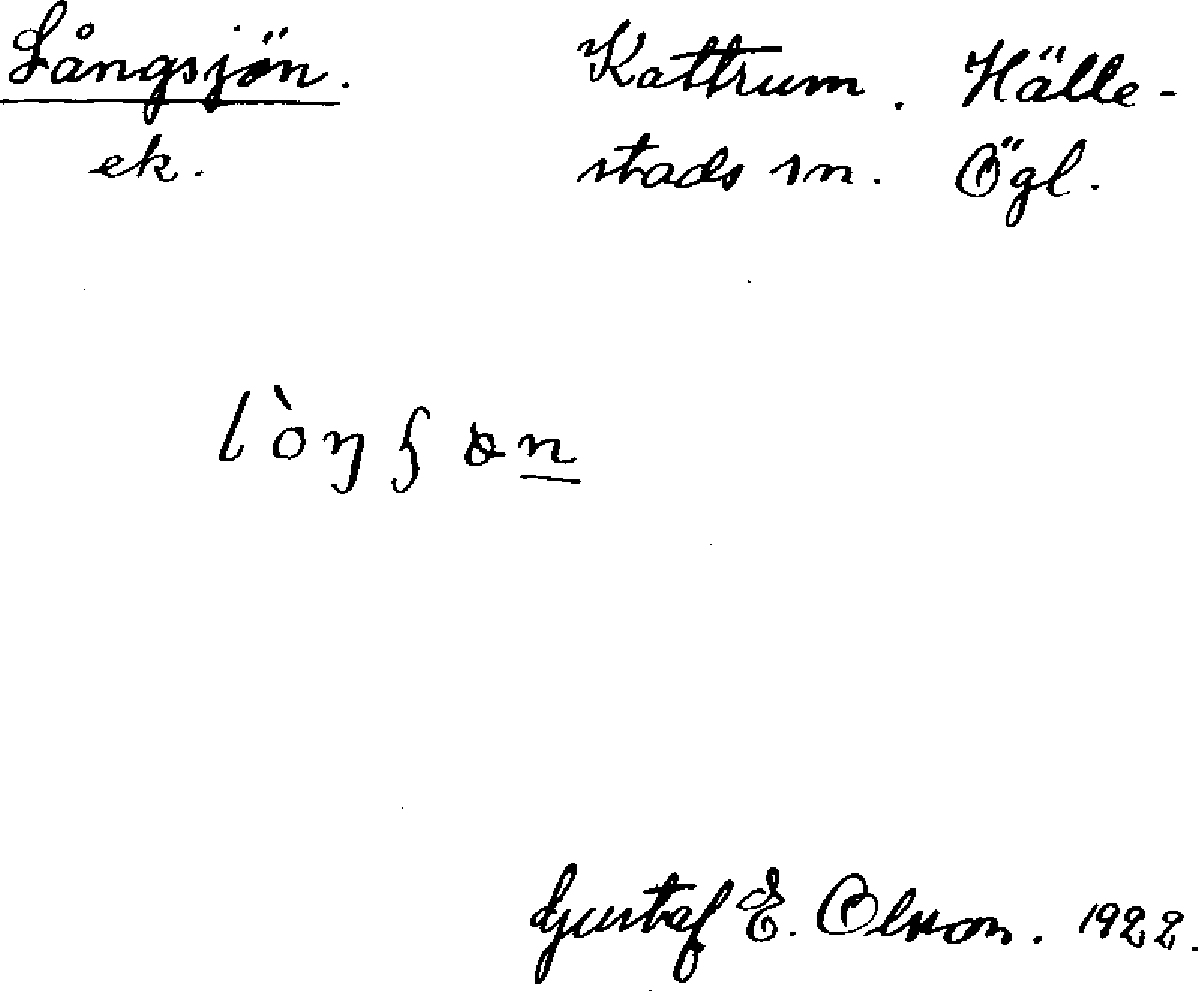 Långsjön. Kattrum. Hälle-
ek. stads sn. Ögl.
Gustaf E. Olsson. 1922.